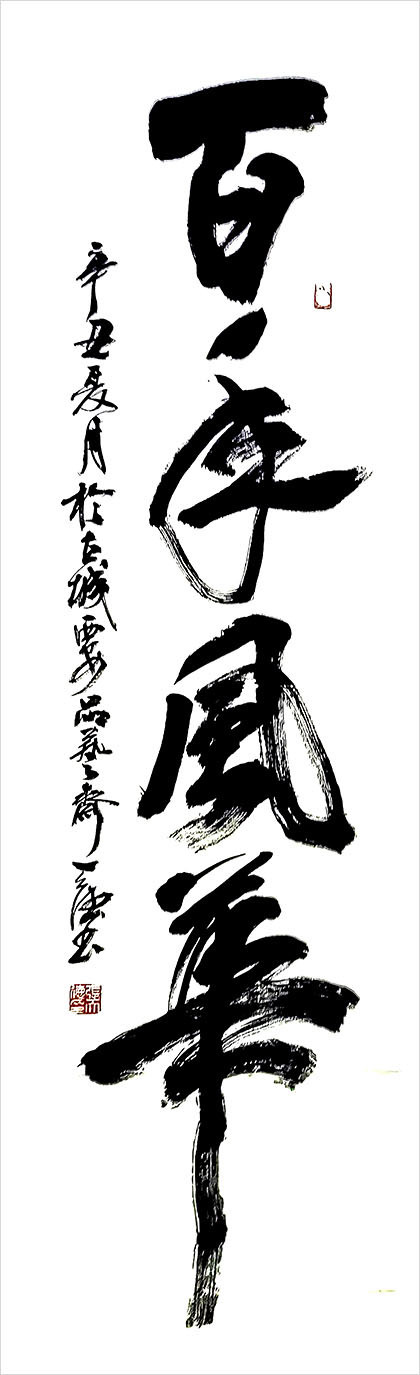 百年風華
辛丑夏月於古城西安品藝齋